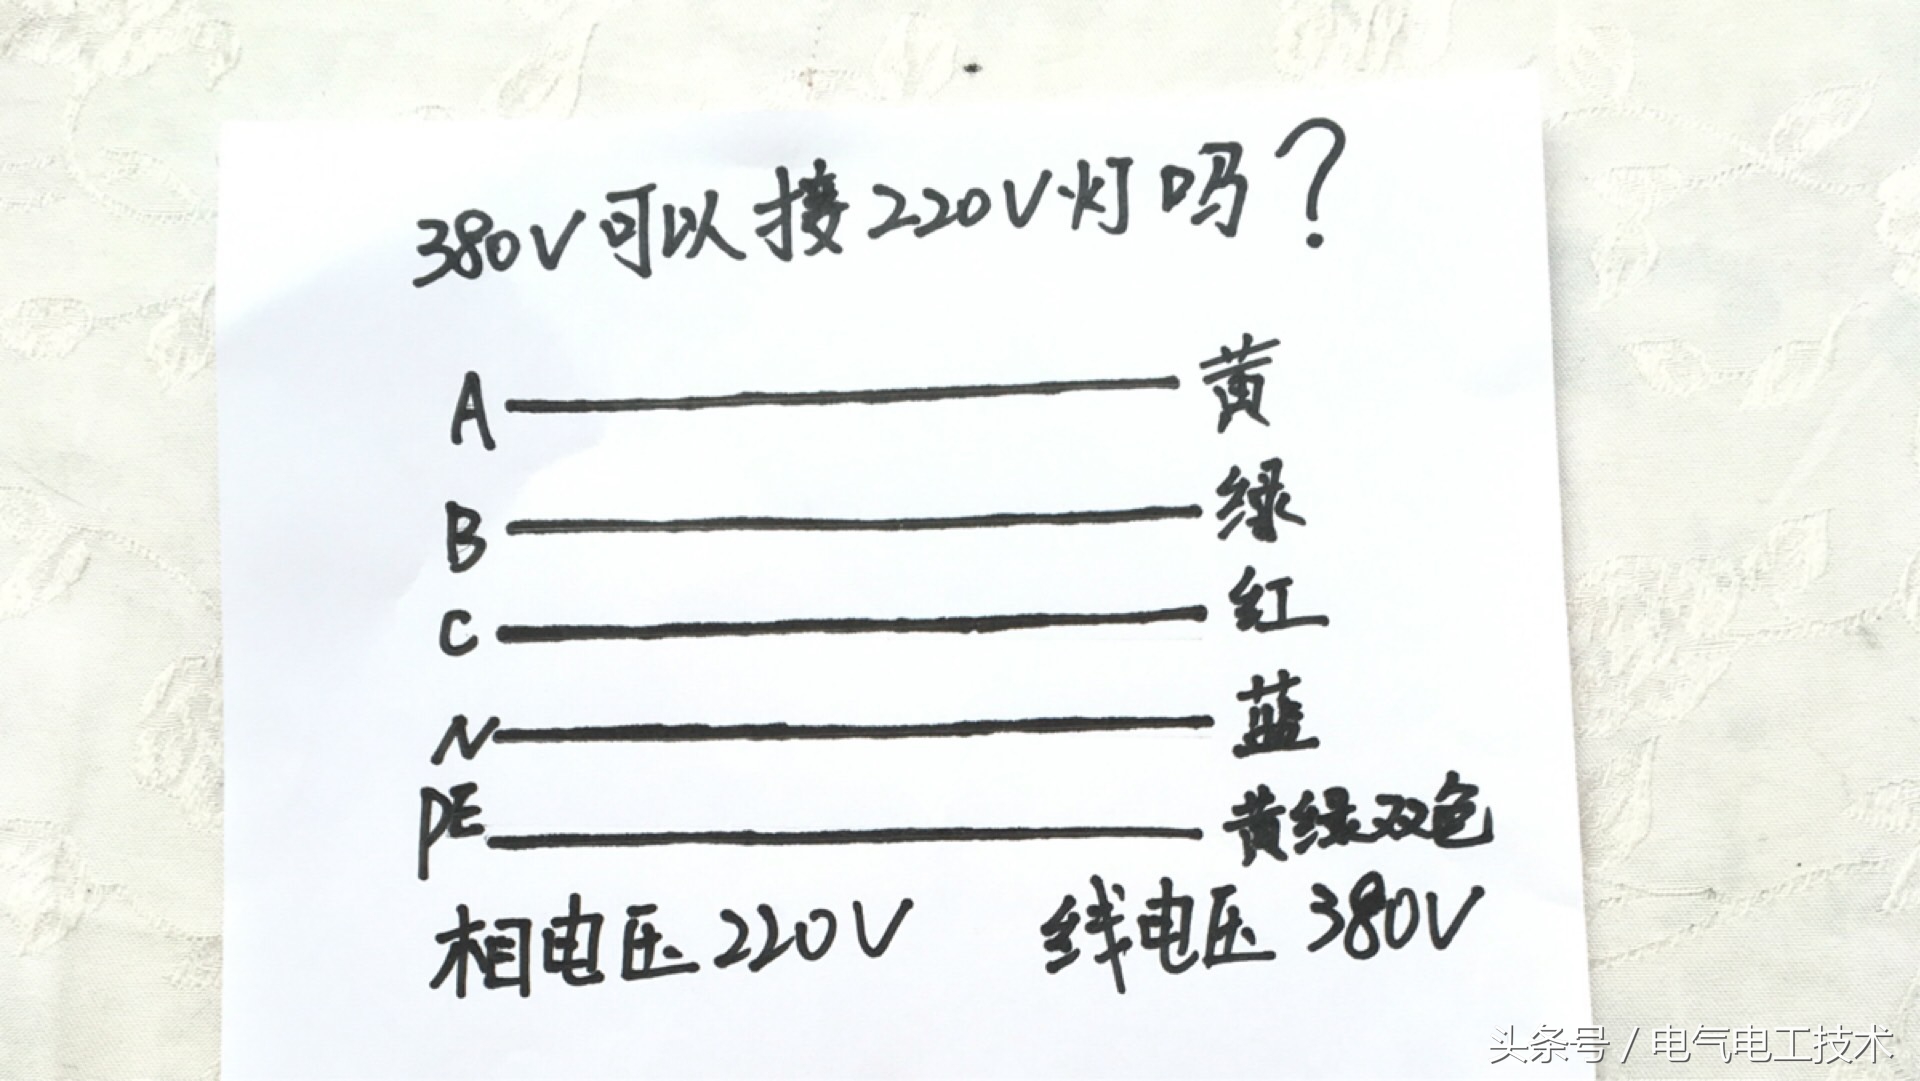 380V可以接220V灯吗?
A 黄
B 绿
C 红
N 蓝
PE 黄绿双色
相电压220V 线电压380V
头条号 / 电气电工技术